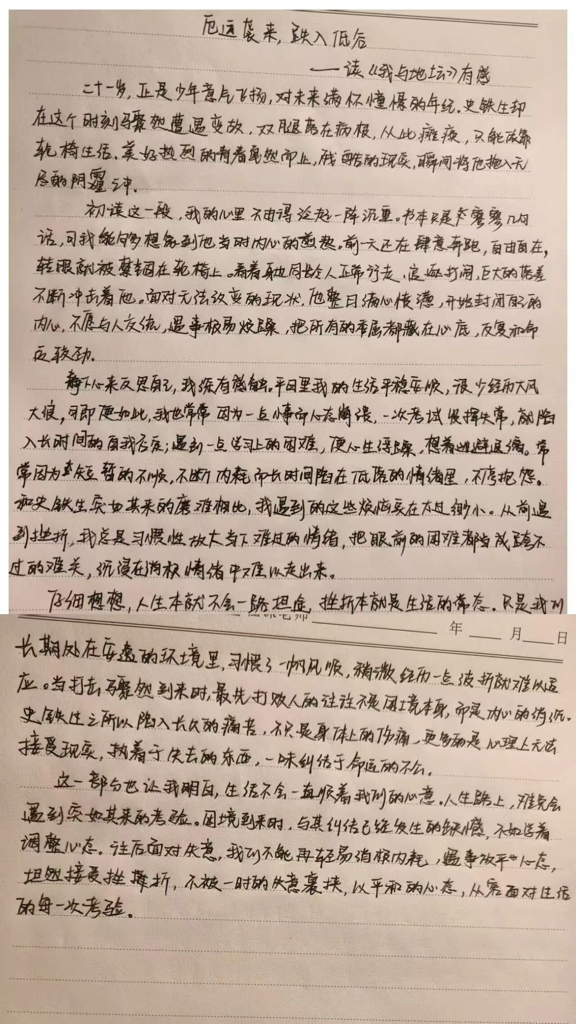 厄运袭来,跌入低谷
——读《我与地坛》有感
二十一岁,正是少年意气飞扬,对未来满怀憧憬的年纪。史铁生却
在这个时刻骤然遭遇变故,双腿落在病根,从此瘫痪,只能依靠
轮椅生活。美好热烈的青春戛然而止,残酷的现实,瞬间将他拖入无
尽的阴霾之中。
初读这一段,我的心里不由得泛起一阵沉重。书本只是寥寥几句
话,可我能够想象到他当时内心的煎熬。前一天还在肆意奔跑,自由自在,
转眼就被禁锢在轮椅上。看着身边同龄人正常行走,追逐打闹,巨大的落差
不断冲击着他。面对无法改变的现状,他整日满心愤懑,开始封闭自己的
内心,不愿与人交流,遇事极易烦躁,把所有的委屈都藏在心底,反复和命
运较劲。
静下心来反思自己,我很有感触。平日里我的生活平稳安顺,很少经历大风
大浪,可即便如此,我也常常因为一点小事而心态崩溃,一次考试发挥失常,就陷
入长时间的自我否定;遇到一点学习上的困难,便心生浮躁,想着逃避退缩。常
常因为短暂的不顺,不断内耗而长时间陷在低落的情绪里,不停抱怨。
和史铁生突如其来的磨难相比,我遇到的这些烦恼实在太过细小。从前遇
到挫折,我总是习惯性放大当下难过的情绪,把眼前的困难都当成跨不
过的难关,沉浸在消极情绪中难以走出来。
仔细想想,人生本就不会一路坦途,挫折本就是生活的常态。只是我们
年 月 日
长期处在安逸的环境里,习惯了一帆风顺,稍微经历一点波折就难以适
应。当打击骤然到来时,最先打败人的往往不是困境本身,而是内心的消沉。
史铁生之所以陷入长久的痛苦,不只是身体上的伤痛,更多的是心理上无法
接受现实,执着于失去的东西,一味纠结于命运的不公。
这一部分也让我明白,生活不会一直顺着我们的心意。人生路上,难免会
遇到突如其来的考验。困境到来时,与其纠结已经发生的缺憾,不如试着
调整心态。往后面对失意,我们不能再轻易消极内耗,遇事放平心态,
坦然接受挫折,不被一时的失意裹挟,以平和的心态,从容面对生活
的每一次考验。